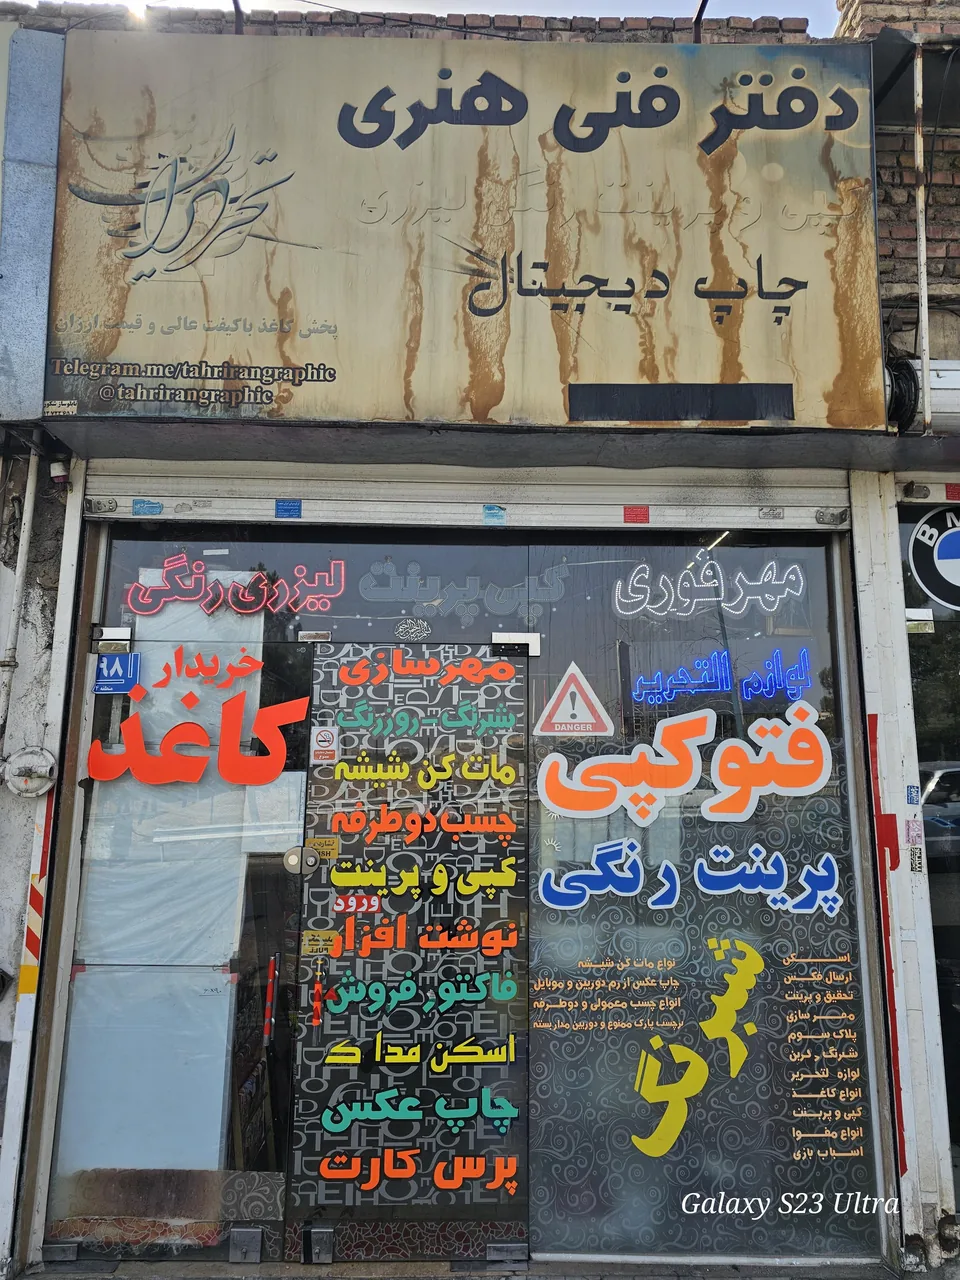 دفتر فنی هنری
کپی و پرینت رنگی لیزری
چاپ دیجیتال
تحریران
پخش کاغذ باکیفت عالی و قیمت ارزان
Telegram.me/tahrirangraphic
@tahrirangraphic
مهر فوری
کپی پرینت
لیزری رنگی
لوازم التحریر
DANGER
فتوکپی
پرینت رنگی
شبرنگ
نواع مات کن شیشه
چاپ عکس از رم دوربین و موبایل
انواع چسب معمولی و دوطرفه
برچسب پارک ممنوع و دوربین مداربسته
اسکن
ارسال فکس
تحقیق و پرینت
مهر سازی
پلاک سوم
انواع کاغذ
کپی و پرینت
انواع مقوا
اسباب بازی
مهرسازی
شبرنگ-روزرنگ
مات کن شیشه
چسب دوطرفه
کپی و پرینت
ورود
نوشت افزار
فاکتور فروش
اسکن مدا ک
چاپ عکس
پرس کارت
خریدار
کاغذ
۹۸
منطقه ۲
BM
Galaxy S23 Ultra